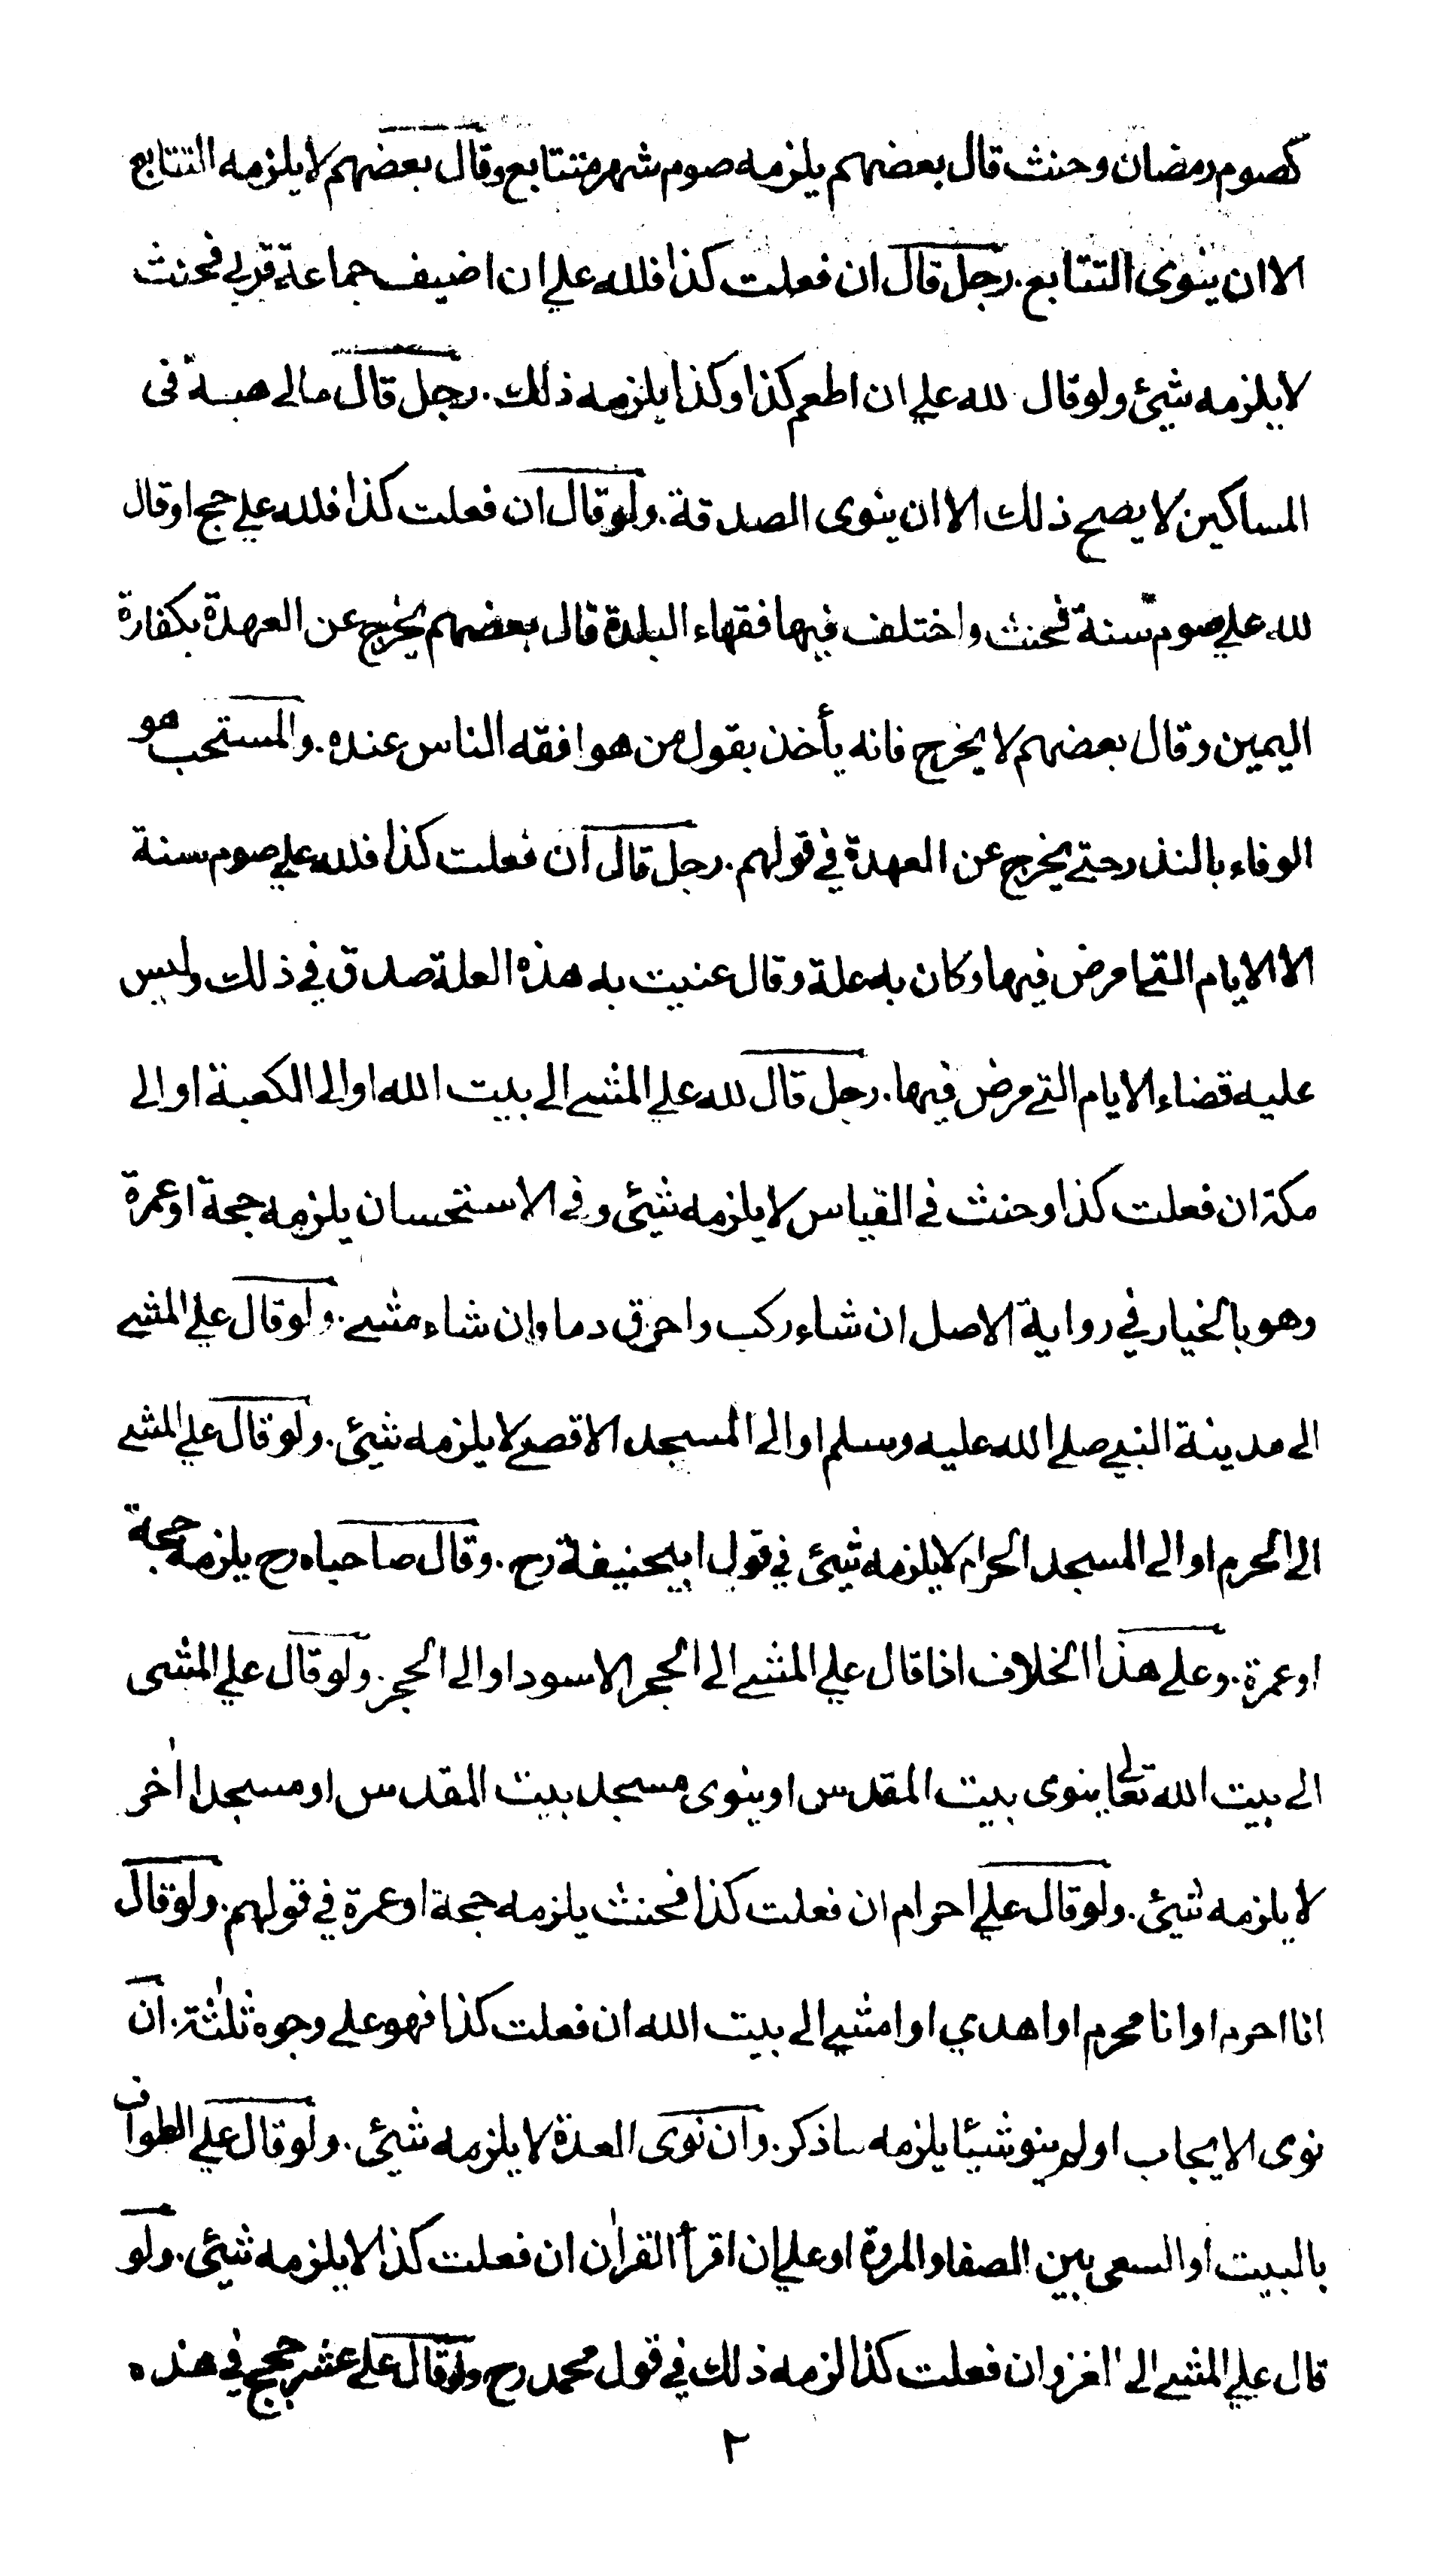 كصوم رمضان وحنث قال بعضهم يلزمه صوم شهر متتابع وقال بعضهم لا يلزمه التتابع
الا ان ينوى التتابع. رجل قال ان فعلت كذا فلله علي ان اضيف جماعة قربي فحنث
لا يلزمه شيئ ولو قال لله علي ان اطعم كذا وكذا يلزمه ذلك. رجل قال مالي هبة في
المساكين لا يصح ذلك الا ان ينوى الصدقة. ولو قال ان فعلت كذا فلله علي حج او قال
لله علي صوم سنة فحنث واختلف فيها فقهاء البلدة قال بعضهم يخرج عن العهدة بكفارة
اليمين وقال بعضهم لا يخرج فانه يأخذ بقول من هو افقه الناس عنده. والمستحب هو
الوفاء بالنذر حتى يخرج عن العهدة في قولهم. رجل قال ان فعلت كذا فلله علي صوم سنة
الا الايام التي مرض فيها وكان به علة وقال عنيت به هذه العلة صدق في ذلك وليس
عليه قضاء الايام التي مرض فيها. رجل قال لله علي المشي الى بيت الله او الى الكعبة او الى
مكة ان فعلت كذا وحنث في القياس لا يلزمه شيئ وفي الاستحسان يلزمه حجة او عمرة
وهو بالخيار في رواية الاصل ان شاء ركب واحرق دما وان شاء مشى. ولو قال علي المشي
الى مدينة النبي صلى الله عليه وسلم او الى المسجد الاقصى لا يلزمه شيئ. ولو قال علي المشي
الى الحرم او الى المسجد الحرام لا يلزمه شيئ في قول ابيحنيفة رح. وقال صاحباه رح يلزمه حجة
او عمرة. وعلى هذا الخلاف اذا قال علي المشي الى الحجر الاسود او الى الحجر. ولو قال علي المشى
الى بيت الله تعالى ينوى بيت المقدس او ينوى مسجد بيت المقدس او مسجدا اٰخر
لا يلزمه شيئ. ولو قال علي احرام ان فعلت كذا فحنث يلزمه حجة او عمرة في قولهم. ولو قال
انا احرم او انا محرم او اهدي او امشي الى بيت الله ان فعلت كذا فهو على وجوه ثلٰثة. ان
نوى الايجاب او لم ينو شيئا يلزمه ما ذكر. وان نوى العدة لا يلزمه شيئ. ولو قال علي الطواف
بالبيت او السعى بين الصفا والمروة او علي ان اقرأ القراٰن ان فعلت كذا لا يلزمه شيئ. ولو
قال علي المشي الى الغزو ان فعلت كذا لزمه ذلك في قول محمد رح ولو قال علي عشر حجج في هذه
٢